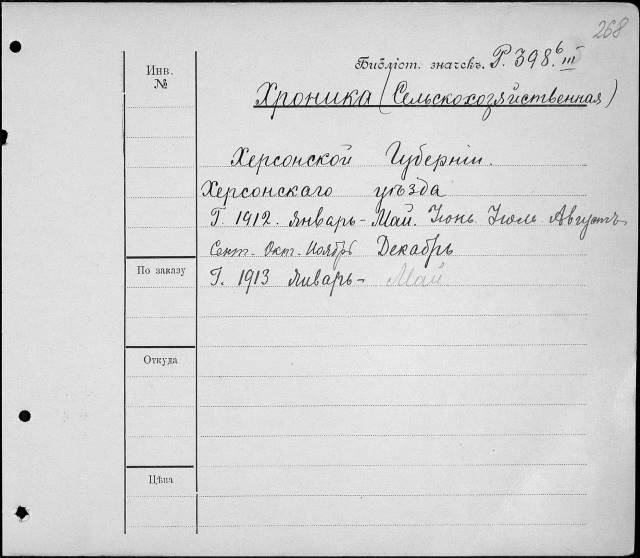 268
Библіот. значекъ. Р. 398. б III
Инв.
№
Хроника (Сельскохозяйственная)
Херсонской Губерніи.
Херсонскаго уѣзда
Г. 1912. январь - Май. Іюнь Іюль Августъ
Сент. Окт. Ноябрь Декабрь
По заказу
Г. 1913 январь - Май
Откуда
Цѣна